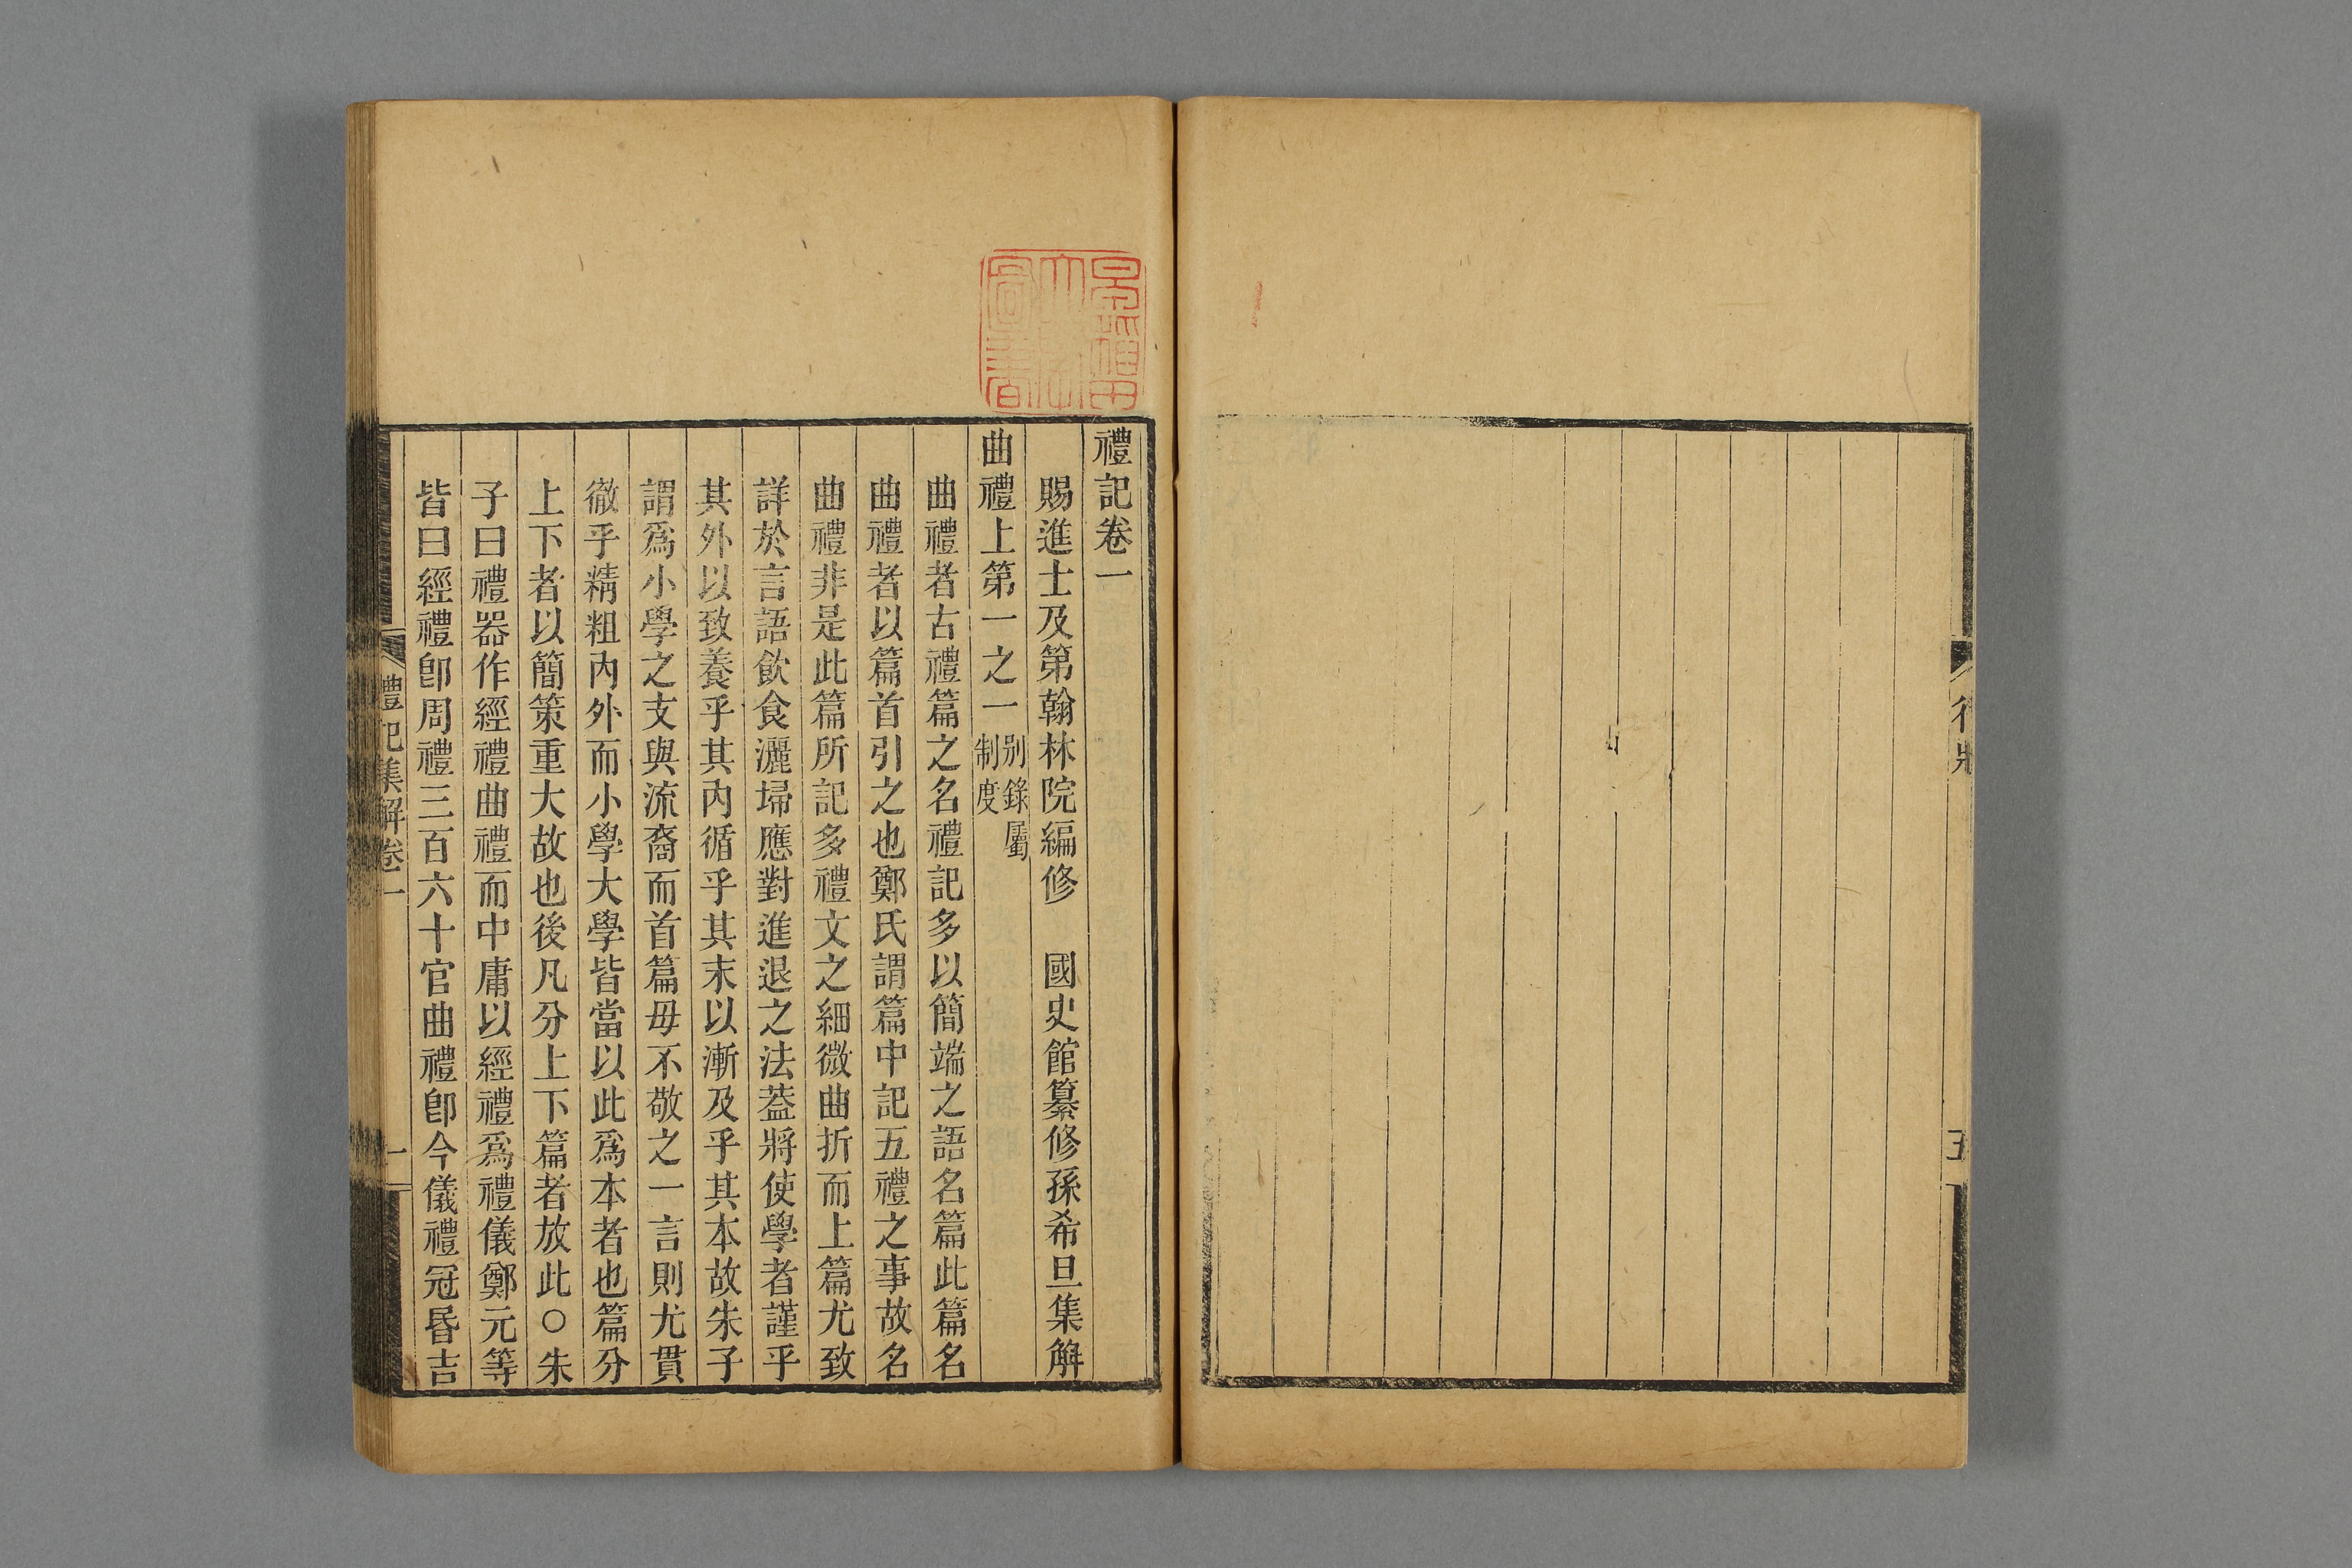 行狀
五
禮記卷一
賜進士及第翰林院編修　國史館纂修孫希旦集解
曲禮上第一之一
別錄屬
制度
曲禮者古禮篇之名禮記多以簡端之語名篇此篇名
曲禮者以篇首引之也鄭氏謂篇中記五禮之事故名
曲禮非是此篇所記多禮文之細微曲折而上篇尤致
詳於言語飲食灑埽應對進退之法葢將使學者謹乎
其外以致養乎其內循乎其末以漸及乎其本故朱子
謂爲小學之支與流裔而首篇毋不敬之一言則尤貫
徹乎精粗內外而小學大學皆當以此爲本者也篇分
上下者以簡策重大故也後凡分上下篇者放此○朱
子曰禮器作經禮曲禮而中庸以經禮爲禮儀鄭元等
皆曰經禮卽周禮三百六十官曲禮卽今儀禮冠昏吉
禮記集解卷一
一